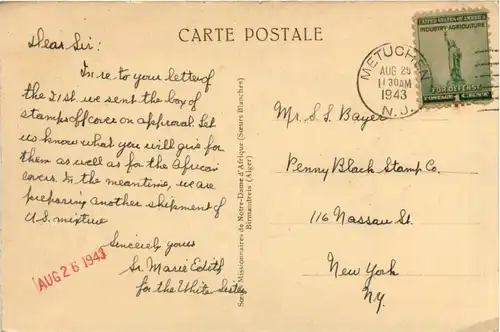 CARTE POSTALE
Dear Sir:
In re to your letter of
the 21st. we sent the box of
stamps off cover on approval. Let
us know what you will give for
them as well as for the African
covers. In the meantime, we are
preparing another shipment of
U.S. mixture
Sincerely yours
Sr. Marie Edith
for the White Sisters
AUG 26 1943
Sœurs Missionnaires de Notre-Dame d'Afrique (Sœurs Blanches)
Birmandreis (Alger)
METUCHEN
AUG 25
11 30 AM
1943
N. J.
UNITED STATES OF AMERICA
INDUSTRY AGRICULTURE
FOR DEFENSE
POSTAGE 1 CENT
Mr. S. S. Bayer
Penny Black Stamp Co.
116 Nassau St.
New York
N.Y.